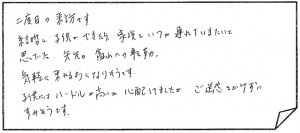 二度目の来訪です
結婚し、子供ができたら家族といつか連れていきたいと
思ってた矢先の富山への転勤。
気軽に来れるようになりそうです。
子供にはハードルが高いか心配してましたが ご迷惑をかけずに
すみそうです。